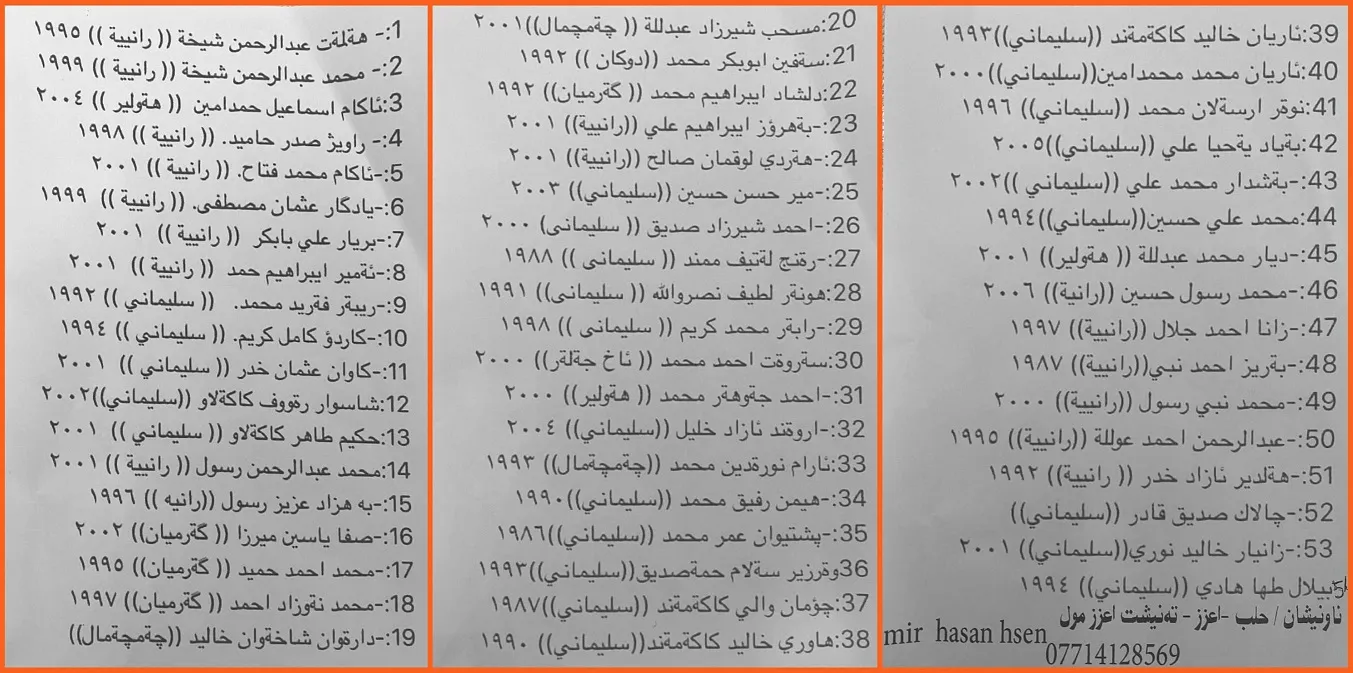 1:- هةلمةت عبدالرحمن شيخة (( رانيية )) ١٩٩٥
2:- محمد عبدالرحمن شيخة (( رانيية )) ١٩٩٩
3:ئاكام اسماعيل حمدامين (( هةولير )) ٢٠٠٤
4:- راويژ صدر حاميد. (( رانيية )) ١٩٩٨
5:-ئاكام محمد فتاح. (( رانيية )) ٢٠٠١
6:-يادگار عثمان مصطفى. (( رانيية )) ١٩٩٩
7:-بريار علي بابكر (( رانيية )) ٢٠٠١
8:-ئةمير ايبراهيم حمد (( رانيية )) ٢٠٠١
9:-ريبةر فةريد محمد. (( سليماني )) ١٩٩٢
10:-كاردؤ كامل كريم. (( سليماني )) ١٩٩٤
11:-كاوان عثمان خدر (( سليماني )) ٢٠٠١
12:شاسوار رةووف كاكةلاو ((سليماني))٢٠٠٢
13:حكيم طاهر كاكةلاو (( سليماني )) ٢٠٠١
14:محمد عبدالرحمن رسول (( رانيية )) ٢٠٠١
15:-به هزاد عزيز رسول ((رانيه )) ١٩٩٦
16:-صفا ياسين ميرزا (( گةرميان)) ٢٠٠٢
17:-محمد احمد حميد (( گةرميان)) ١٩٩٥
18:-محمد نةوزاد احمد (( گةرميان)) ١٩٩٧
19:-دارةوان شاخةوان خاليد ((چةمچةمال))
20:مسحب شيرزاد عبدللة (( چةمچمال))٢٠٠١
21:-سةفين ابوبكر محمد ((دوكان )) ١٩٩٢
22:دلشاد ايبراهيم محمد (( گةرميان)) ١٩٩٢
23:-بةهرؤز ايبراهيم علي ((رانيية)) ٢٠٠١
24:-هةردي لوقمان صالح ((رانيية)) ٢٠٠١
25:-مير حسن حسين ((سليماني)) ٢٠٠٣
26:-احمد شيرزاد صديق (( سليمانى) ٢٠٠٠
27:-رةنج لةتيف ممند (( سليمانى )) ١٩٨٨
28:هونةر لطيف نصروالله (( سليمانى)) ١٩٩١
29:-رابةر محمد كريم (( سليمانى )) ١٩٩٨
30:سةروةت احمد محمد (( ئاخ جةلةر)) ٢٠٠٠
31:-احمد جةوهةر محمد (( هةولير)) ٢٠٠٠
32:-اروةند ئازاد خليل ((سليماني)) ٢٠٠٤
33:ئارام نورةدين محمد ((چةمچةمال)) ١٩٩٣
34:-هيمن رفيق محمد ((سليماني))١٩٩٠
35:-پشتيوان عمر محمد ((سليماني))١٩٨٦
36وةرزير سةلام حمةصديق((سليماني))١٩٩٣
37:چؤمان والي كاكةمةند ((سليماني))١٩٨٧
38:هاوري خاليد كاكةمةند((سليماني)) ١٩٩٠
39:ئاريان خاليد كاكةمةند ((سليماني))١٩٩٣
40:ئاريان محمد محمدامين((سليماني))٢٠٠٠
41:نوةر ارسةلان محمد ((سليماني)) ١٩٩٦
42:بةياد يةحيا علي ((سليماني))٢٠٠٥
43:-بةشدار محمد علي ((سليماني ))٢٠٠٢
44:محمد علي حسين((سليماني))١٩٩٤
45:-ديار محمد عبدللة (( هةولير)) ٢٠٠١
46:-محمد رسول حسين ((رانية)) ٢٠٠٦
47:-زانا احمد جلال ((رانيية)) ١٩٩٧
48:-بةريز احمد نبي((رانيية)) ١٩٨٧
49:-محمد نبي رسول ((رانيية)) ٢٠٠٠
50:-عبدالرحمن احمد عوللة ((رانيية)) ١٩٩٥
51:-هةلدير ئازاد خدر (( رانيية)) ١٩٩٢
52:-چالاك صديق قادر ((سليماني))
53:-زانيار خاليد نوري((سليماني)) ٢٠٠١
54بيلال طها هادي ((سليماني)) ١٩٩٤
ناونيشان / حلب -اعزز - تةنيشت اعزز مول
mir hasan hsen
07714128569